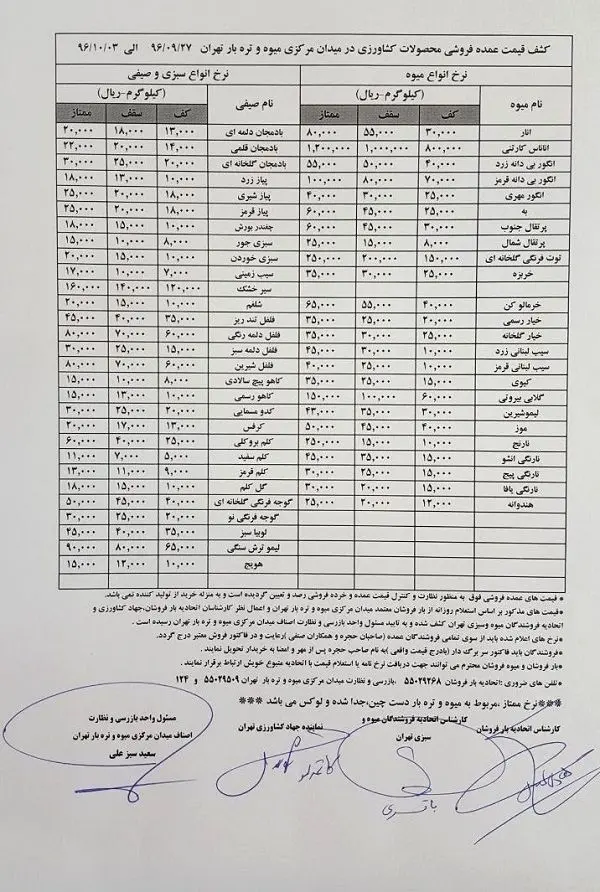 کشف قیمت عمده فروشی محصولات کشاورزی در میدان مرکزی میوه و تره بار تهران ۹۶/۰۹/۲۷ الی ۹۶/۱۰/۰۳
نرخ انواع میوه نرخ انواع سبزی و صیفی
نام میوه (کیلوگرم-ریال) نام صیفی (کیلوگرم-ریال)
کف سقف ممتاز کف سقف ممتاز
انار ۳۰,۰۰۰ ۵۵,۰۰۰ ۸۰,۰۰۰ بادمجان دلمه ای ۱۳,۰۰۰ ۱۸,۰۰۰ ۲۰,۰۰۰
اناناس کارتنی ۸۰۰,۰۰۰ ۱,۰۰۰,۰۰۰ ۱,۲۰۰,۰۰۰ بادمجان قلمی ۱۴,۰۰۰ ۲۰,۰۰۰ ۲۲,۰۰۰
انگور بی دانه زرد ۴۰,۰۰۰ ۵۰,۰۰۰ ۵۵,۰۰۰ بادمجان گلخانه ای ۲۰,۰۰۰ ۲۵,۰۰۰ ۳۰,۰۰۰
انگور بی دانه قرمز ۷۰,۰۰۰ ۸۰,۰۰۰ ۱۰۰,۰۰۰ پیاز زرد ۱۰,۰۰۰ ۱۳,۰۰۰ ۱۸,۰۰۰
انگور مهری ۲۵,۰۰۰ ۳۰,۰۰۰ ۴۰,۰۰۰ پیاز شیری ۱۸,۰۰۰ ۲۰,۰۰۰ ۲۵,۰۰۰
به ۲۵,۰۰۰ ۴۵,۰۰۰ ۶۰,۰۰۰ پیاز قرمز ۱۸,۰۰۰ ۲۰,۰۰۰ ۲۵,۰۰۰
پرتقال جنوب ۳۰,۰۰۰ ۴۵,۰۰۰ ۶۰,۰۰۰ چغندر بورش ۱۰,۰۰۰ ۱۵,۰۰۰ ۱۸,۰۰۰
پرتقال شمال ۸,۰۰۰ ۱۵,۰۰۰ ۲۵,۰۰۰ سبزی جور ۸,۰۰۰ ۱۰,۰۰۰ ۱۵,۰۰۰
توت فرنگی گلخانه ای ۱۵۰,۰۰۰ ۲۰۰,۰۰۰ ۲۵۰,۰۰۰ سبزی خوردن ۱۰,۰۰۰ ۱۵,۰۰۰ ۲۰,۰۰۰
خربزه ۲۵,۰۰۰ ۳۰,۰۰۰ ۳۵,۰۰۰ سیب زمینی ۷,۰۰۰ ۱۰,۰۰۰ ۱۷,۰۰۰
سیر خشک ۱۲۰,۰۰۰ ۱۴۰,۰۰۰ ۱۶۰,۰۰۰
خرمالو کن ۴۰,۰۰۰ ۵۵,۰۰۰ ۶۵,۰۰۰ شلغم ۱۰,۰۰۰ ۱۵,۰۰۰ ۲۰,۰۰۰
خیار رسمی ۲۰,۰۰۰ ۲۵,۰۰۰ ۳۵,۰۰۰ فلفل تند ریز ۳۵,۰۰۰ ۴۰,۰۰۰ ۴۵,۰۰۰
خیار گلخانه ۲۵,۰۰۰ ۳۰,۰۰۰ ۳۵,۰۰۰ فلفل دلمه رنگی ۶۰,۰۰۰ ۷۰,۰۰۰ ۸۰,۰۰۰
سیب لبنانی زرد ۱۰,۰۰۰ ۳۰,۰۰۰ ۴۵,۰۰۰ فلفل دلمه سبز ۱۵,۰۰۰ ۲۵,۰۰۰ ۳۰,۰۰۰
سیب لبنانی قرمز ۱۰,۰۰۰ ۲۵,۰۰۰ ۴۰,۰۰۰ فلفل شیرین ۶۰,۰۰۰ ۷۰,۰۰۰ ۸۰,۰۰۰
کیوی ۱۵,۰۰۰ ۲۵,۰۰۰ ۳۵,۰۰۰ کاهو پیچ سالادی ۸,۰۰۰ ۱۰,۰۰۰ ۱۵,۰۰۰
گلابی بیروتی ۶۰,۰۰۰ ۱۰۰,۰۰۰ ۱۵۰,۰۰۰ کاهو رسمی ۱۰,۰۰۰ ۱۳,۰۰۰ ۱۵,۰۰۰
لیموشیرین ۳۰,۰۰۰ ۳۵,۰۰۰ ۴۳,۰۰۰ کدو مسمایی ۲۰,۰۰۰ ۲۵,۰۰۰ ۳۰,۰۰۰
موز ۴۰,۰۰۰ ۴۵,۰۰۰ ۵۰,۰۰۰ کرفس ۱۳,۰۰۰ ۱۷,۰۰۰ ۲۰,۰۰۰
نارنج ۱۰,۰۰۰ ۱۵,۰۰۰ ۲۵۰,۰۰۰ کلم بروکلی ۲۵,۰۰۰ ۴۰,۰۰۰ ۶۰,۰۰۰
نارنگی انشو ۱۵,۰۰۰ ۳۵,۰۰۰ ۴۵,۰۰۰ کلم سفید ۵,۰۰۰ ۷,۰۰۰ ۱۱,۰۰۰
نارنگی پیج ۱۵,۰۰۰ ۲۵,۰۰۰ ۳۰,۰۰۰ کلم قرمز ۹,۰۰۰ ۱۱,۰۰۰ ۱۳,۰۰۰
نارنگی یافا ۱۵,۰۰۰ ۲۰,۰۰۰ ۳۰,۰۰۰ گل کلم ۱۰,۰۰۰ ۱۵,۰۰۰ ۱۸,۰۰۰
هندوانه ۱۲,۰۰۰ ۲۰,۰۰۰ ۲۵,۰۰۰ گوجه فرنگی گلخانه ای ۴۰,۰۰۰ ۴۵,۰۰۰ ۵۰,۰۰۰
گوجه فرنگی نو ۲۰,۰۰۰ ۲۵,۰۰۰ ۳۰,۰۰۰
لوبیا سبز ۳۵,۰۰۰ ۴۰,۰۰۰ ۴۵,۰۰۰
لیمو ترش سنگی ۶۵,۰۰۰ ۸۰,۰۰۰ ۹۰,۰۰۰
هویج ۱۰,۰۰۰ ۱۲,۰۰۰ ۱۵,۰۰۰
* قیمت های عمده فروشی فوق به منظور نظارت و کنترل قیمت عمده و خرده فروشی رصد و تعیین گردیده است و به منزله خرید از تولید کننده نمی باشد.
*قیمت های مذکور بر اساس استعلام روزانه از بار فروشان معتمد میدان مرکزی میوه و تره بار تهران و اعمال نظر کارشناسان اتحادیه بار فروشان،جهاد کشاورزی و
اتحادیه فروشندگان میوه وسبزی تهران کشف شده و به تایید مسئول واحد بازرسی و نظارت اصناف میدان مرکزی میوه و تره بار تهران رسیده است .
*نرخ های اعلام شده باید از سوی تمامی فروشندگان عمده (صاحبان حجره و همکاران صنفی )رعایت و در فاکتور فروش معتبر درج گردد.
*فروشندگان باید فاکتور سر برگ دار (بادرج قیمت واقعی )به نام صاحب حجره پس از مهر و امضا به خریدار تحویل نمایند .
*بار فروشان و میوه فروشان محترم می توانند جهت دریافت نرخ نامه یا استعلام قیمت با اتحادیه متبوع خویش ارتباط برقرار نمایند .
*تلفن های ضروری :اتحادیه بار فروشان ۵۵۰۲۹۲۶۸ ،بازرسی و نظارت میدان مرکزی میوه و تره بار تهران ۵۵۰۲۹۵۰۹ و ۱۲۴
***نرخ ممتاز ،مربوط به میوه و تره بار دست چین،جدا شده و لوکس می باشد ***
کارشناس اتحادیه بار فروشان
کارشناس اتحادیه فروشندگان میوه و
سبزی تهران
نماینده جهاد کشاورزی تهران
مسئول واحد بازرسی و نظارت
اصناف میدان مرکزی میوه و تره بار تهران
سعید سبز علی
باقری